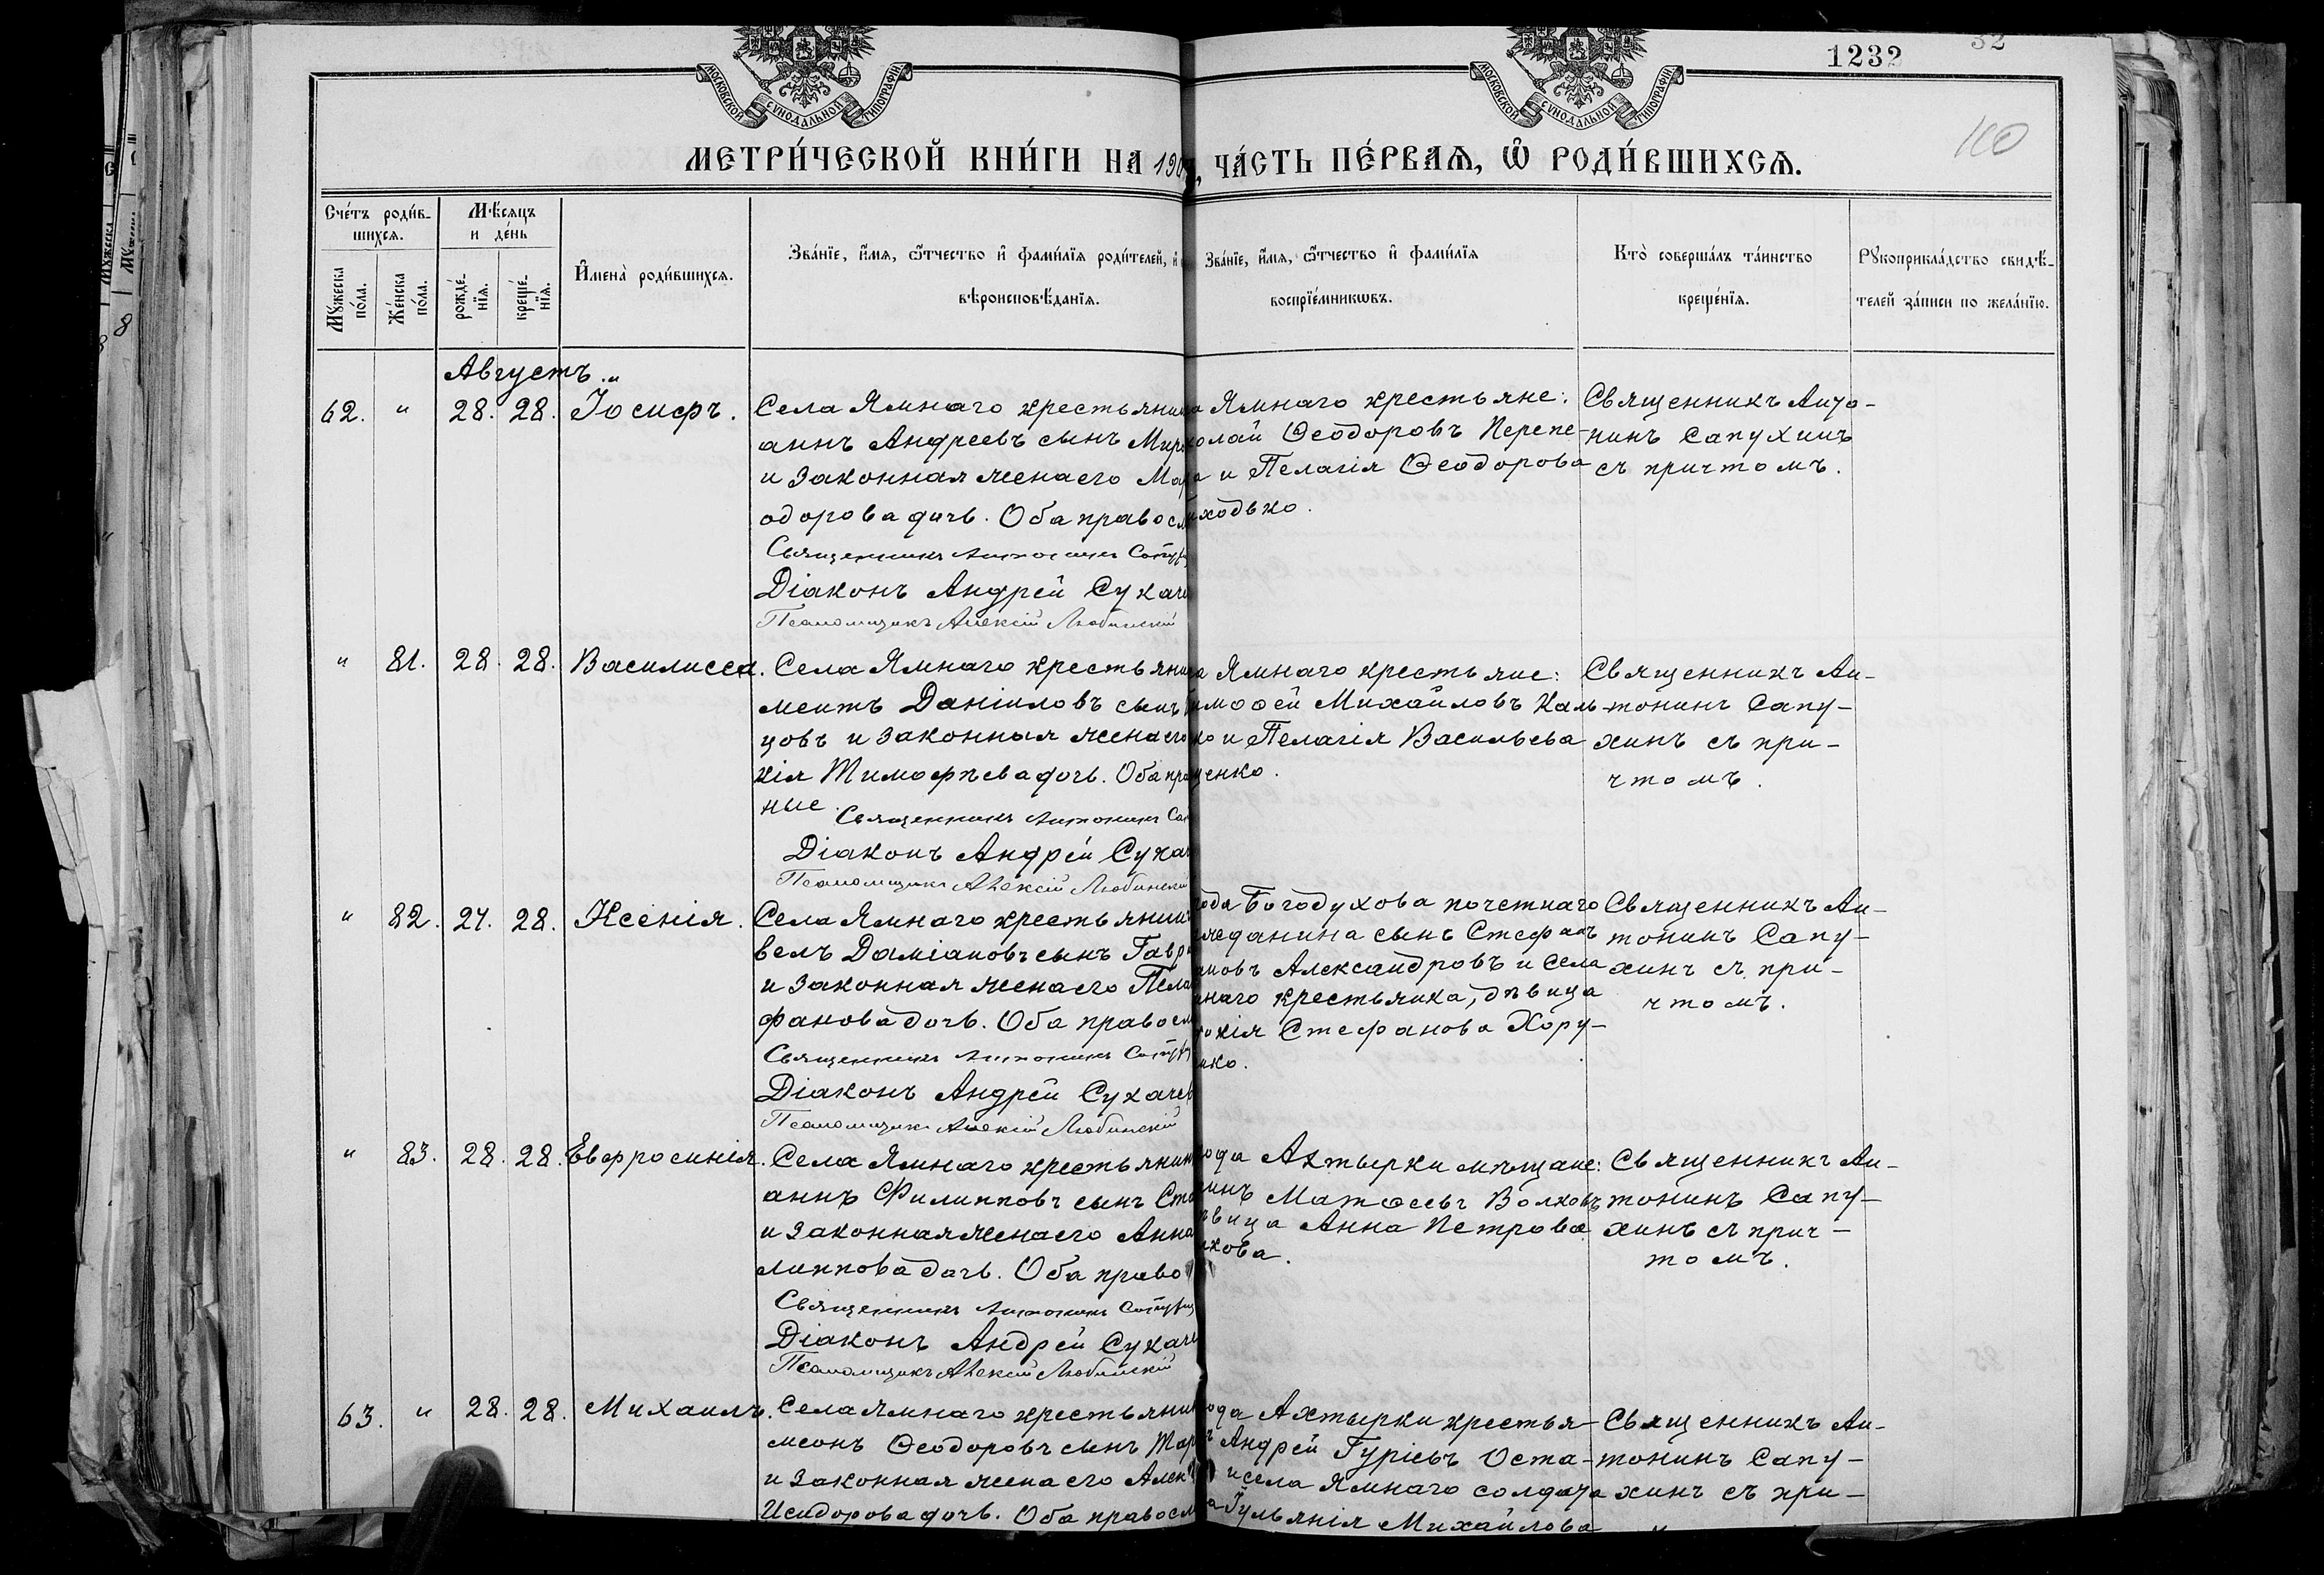 1232
32
110
МОСКОВСКОЙ СѴНОДАЛЬНОЙ ТИПОГРАФІИ
МОСКОВСКОЙ СѴНОДАЛЬНОЙ ТИПОГРАФІИ
МЕТРИ́ЧЕСКОЙ КНИ́ГИ НА 190 , ЧА́СТЬ ПЕ́РВАѦ, Ѿ РОДИ́ВШИХСѦ.
Сче́тъ роди́в-
шихсѧ.
Мꙋ́жеска по́ла.
Же́нска по́ла.
Мѣ́сѧцъ
и де́нь
рожде́-нїѧ.
креще́-нїѧ.
И҆мена̀ роди́вшихсѧ.
Зва́нїе, и҆́мѧ, ѻ҆́тчество и҆ фами́лїѧ роди́телей, и҆
вѣроисповѣ́данїѧ.
Зва́нїе, и҆́мѧ, ѻ҆́тчество и҆ фами́лїѧ
воспрїе́мникѡвъ.
Кто̀ соверша́лъ та́инство
креще́нїѧ.
Рꙋкоприкла́дство свидѣ́-
телей за́писи по жела́нїю.
Августъ.
62. " 28. 28. Іосифъ.
Села Ямнаго крестьянин
аннъ Андреевъ сынъ Мир
и законная жена его Мар
одорова дочь. Оба правосл
Священникъ Антонинъ Сапух
Діаконъ Андрей Сукаче
Псаломщикъ Алексій Любинскій
а Ямнаго крестьяне:
колай Ѳеодоровъ Перепе-
а и Пелагія Ѳеодорова
ходько.
Священникъ Анто-
нинъ Сапухинъ
съ причтомъ.
" 81. 28. 28. Василисса.
Села Ямнаго крестьяни
ментъ Даніиловъ сынъ
цовъ и законная жена его
кія Тимофѣева дочь. Оба пра
ные.
Священникъ Антонинъ Сап
Діаконъ Андрей Сукач
Псаломщикъ Алексій Любинскій
а Ямнаго крестьяне:
имоѳей Михайловъ Каль-
ко и Пелагія Васильева
ценко.
Священникъ Ан-
тонинъ Сапу-
хинъ съ при-
чтомъ.
" 82. 27. 28. Ксенія.
Села Ямнаго крестьянин
велъ Даміановъ сынъ Гавр
и законная жена его Пела
фанова дочь. Оба правосл
Священникъ Антонинъ Сапух
Діаконъ Андрей Сукачев
Псаломщикъ Алексій Любинскій
ода Богодухова почетнаго
жданина сынъ Стефанъ
ановъ Александровъ и села
наго крестьянка, дѣвица
окія Стефанова Хору-
нко.
Священникъ Ан-
тонинъ Сапу-
хинъ съ при-
чтомъ.
" 83. 28. 28. Евфросинія.
Села Ямнаго крестьянин
аннъ Филипповъ сынъ Сто
и законная жена его Анна
липпова дочь. Оба право
Священникъ Антонинъ Сапухин
Діаконъ Андрей Сукаче
Псаломщикъ Алексій Любинскій
ода Ахтырки мѣщане:
инъ Матѳеевъ Волковъ
ѣвица Анна Петрова
лкова.
Священникъ Ан-
тонинъ Сапу-
хинъ съ прич-
томъ.
63. " 28. 28. Михаилъ.
Села Ямнаго крестьянин
меонъ Ѳеодоровъ сынъ Тар
и законная жена его Алек
Исидорова дочь. Оба правосл
ода Ахтырки крестья-
ъ Андрей Гуріевъ Оста-
и села Ямнаго солдата
а Іуліянія Михайлова
Священникъ Ан-
тонинъ Сапу-
хинъ съ при-